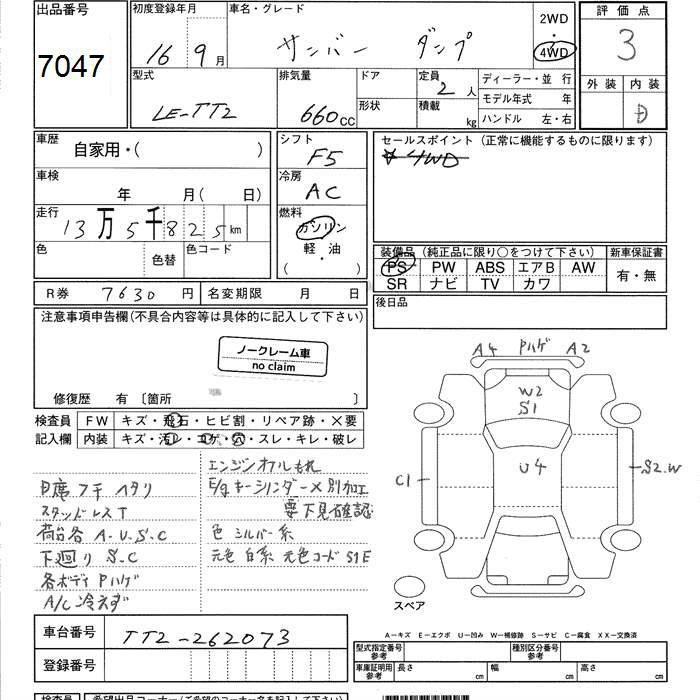 出品番号 初度登録年月 車名・グレード 2WD 評価点
7047 16 9月 サンバー ダンプ ・ 4WD 3
型式 排気量 ドア 定員 2人 ディーラー・並行 外装 内装
LE-TT2 660cc 形状 積載 kg モデル年式 年 D
ハンドル 左・右
車歴 自家用・( ) シフト F5 セールスポイント (正常に機能するものに限ります)
☆4WD
車検 年 月(日) 冷房 AC
走行 13万5千825km 燃料 ガソリン・軽油 ( )
色 色替 色コード
装備品 (純正品に限り○をつけて下さい) 新車保証書
PS PW ABS エアB AW 有・無
SR ナビ TV カワ
後日品
R券 7630円 名変期限 月 日
注意事項申告欄(不具合内容等は具体的に記入して下さい)
ノークレーム車
no claim
修復歴 有 〔箇所 〕
検査員 FW キズ・飛石・ヒビ割・リペア跡・×要
記入欄 内装 キズ・汚レ・コゲ・穴・スレ・キレ・破レ
A4 Pハゲ A2
W2
S1
U4
C1
S2.W
スペア
スタッドレスT
荷台各 A・U・S・C
下廻り S.C
各ボディ Pハゲ
A/C冷えず
エンジンオイルもれ
E/gキーシリンダー×別加工
要下見確認
色 シルバー系
元色 白系 元色コード 51E
車台番号 TT2-262073
登録番号
A－キズ E－エクボ U－凹み W－補修跡 S－サビ C－腐食 XX－交換済
型式指定番号 参考 種別区分番号 参考
車庫証明用 参考 長さ cm 幅 cm 高さ cm